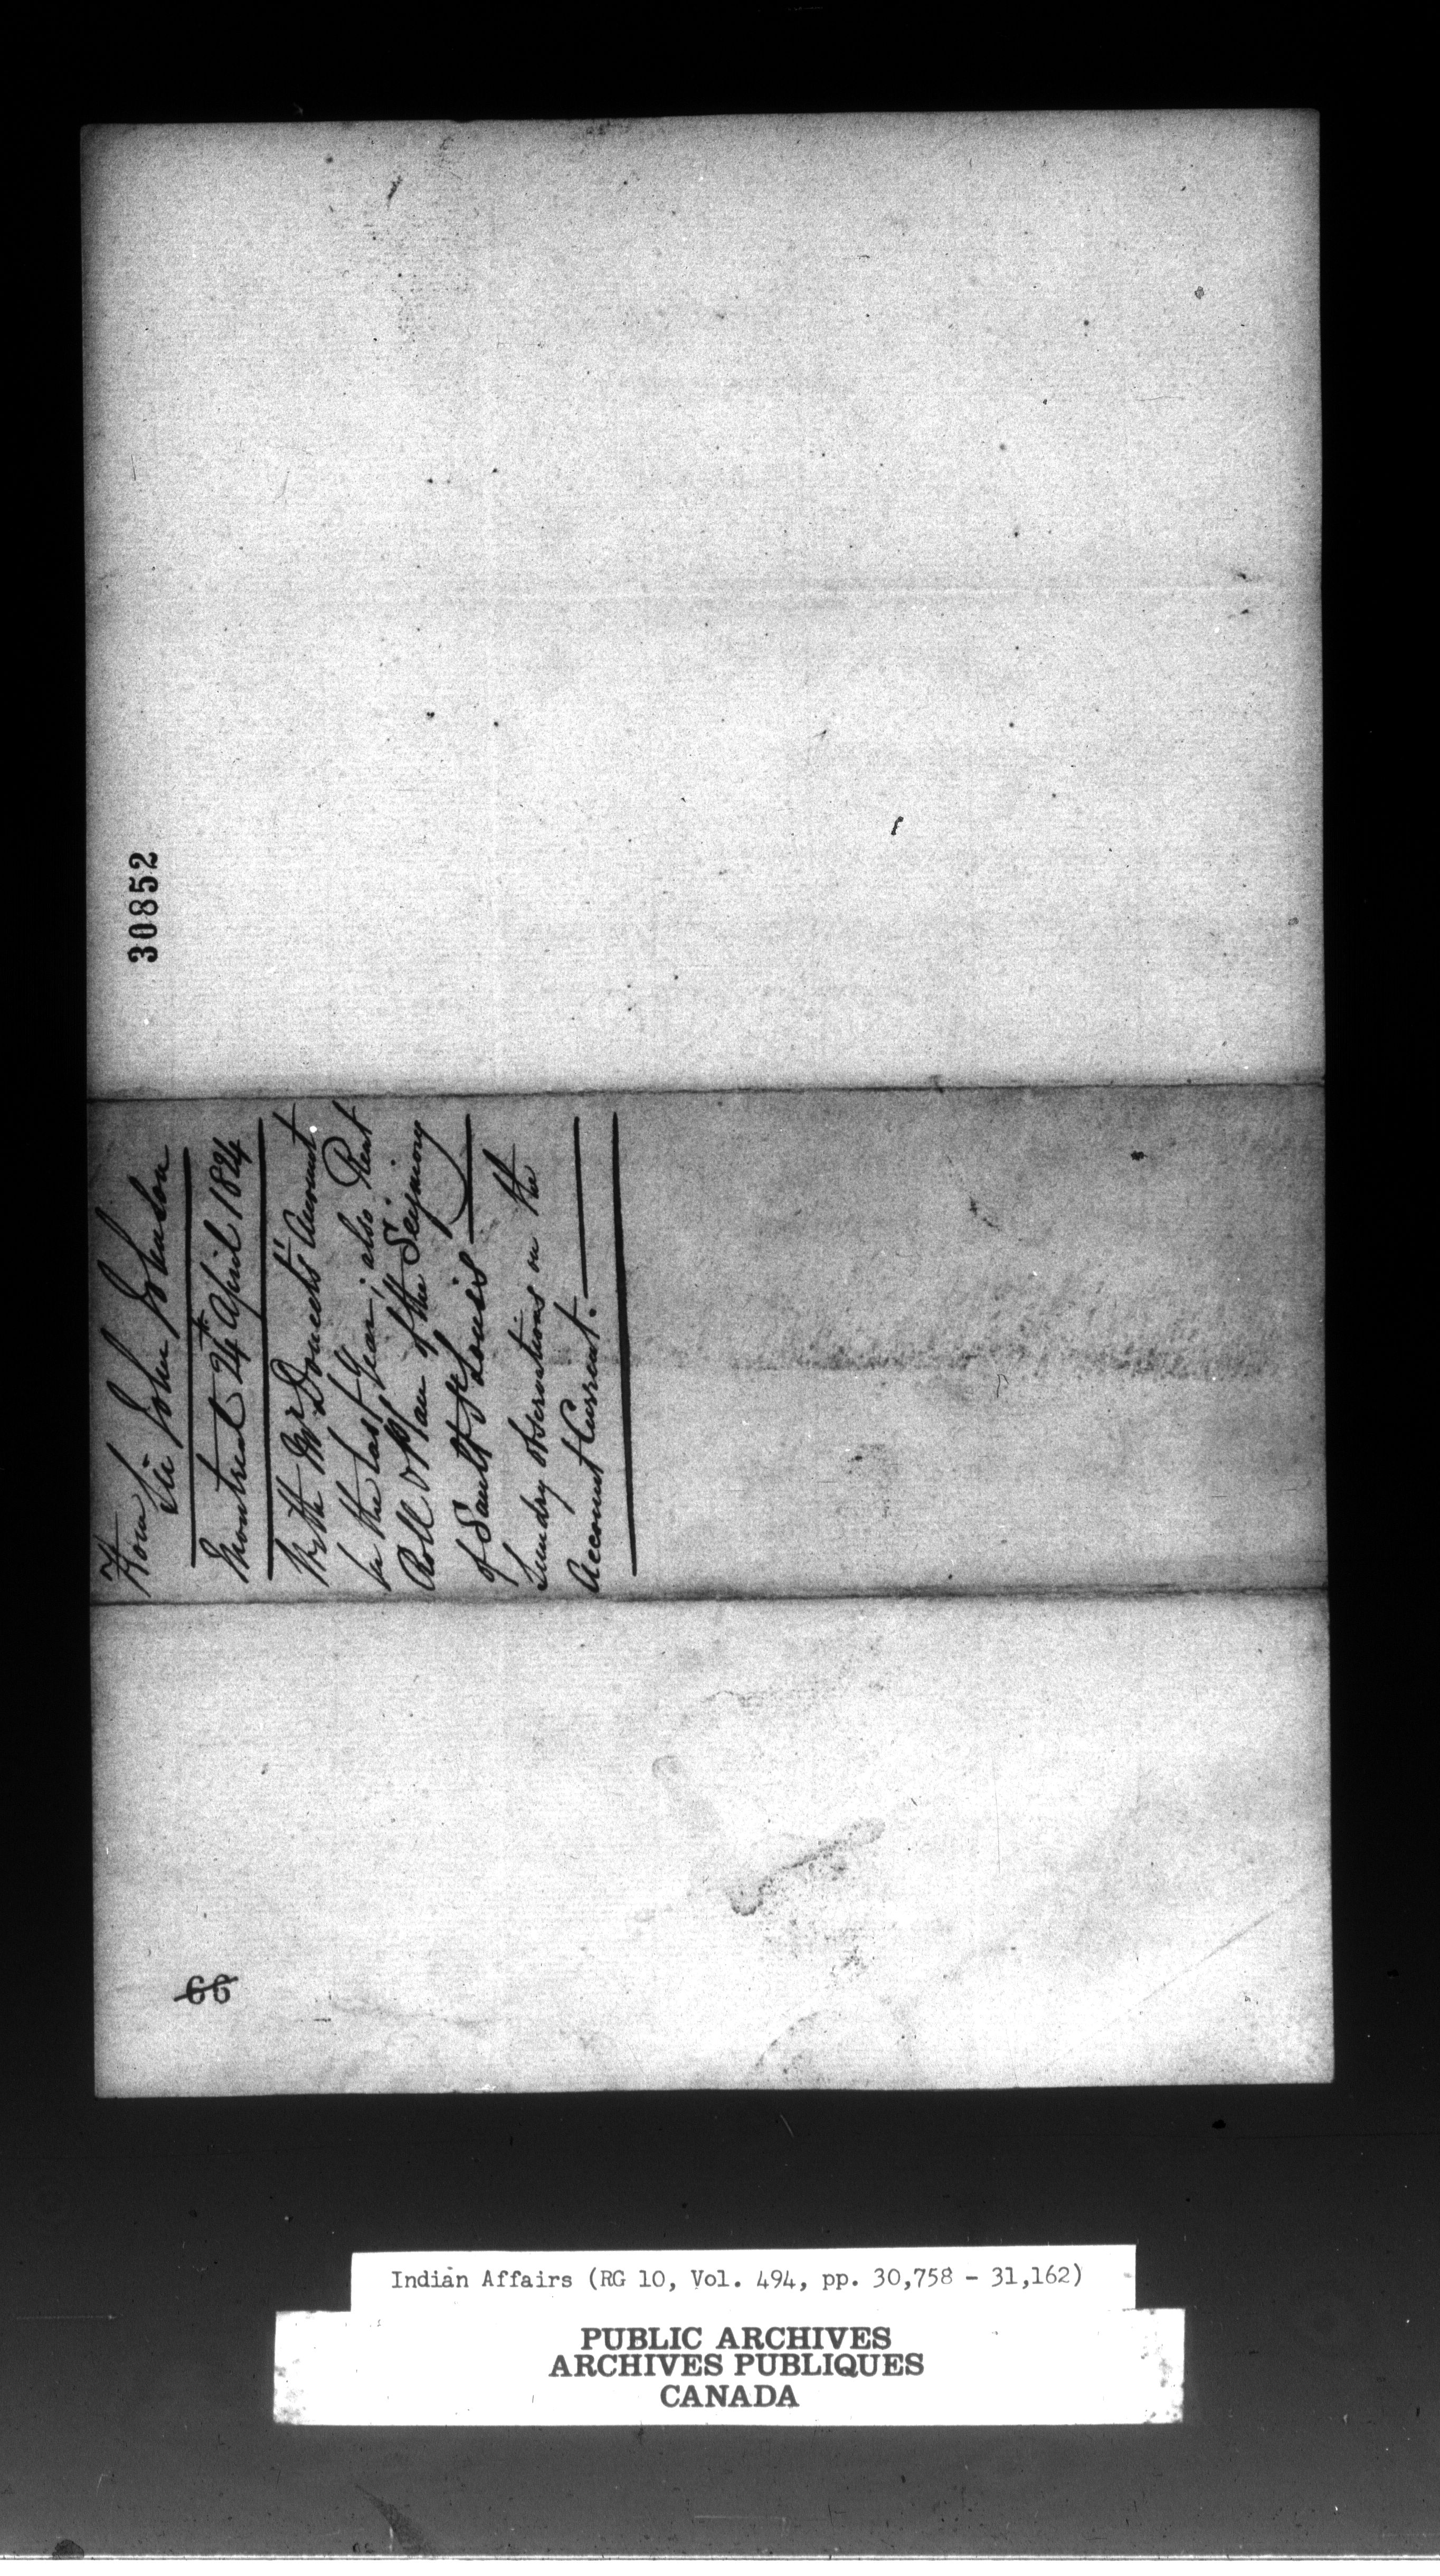 30852
From
Sir John Johnson
Montreal 24th April 1824
With Mr Doucet's Account
for the last Year; also Rent
Roll & Plan of the Seigniory
of Sault St Louis
Sundry observations on the
Account Current.
66
Indian Affairs (RG 10, Vol. 494, pp. 30,758 - 31,162)
PUBLIC ARCHIVES
ARCHIVES PUBLIQUES
CANADA